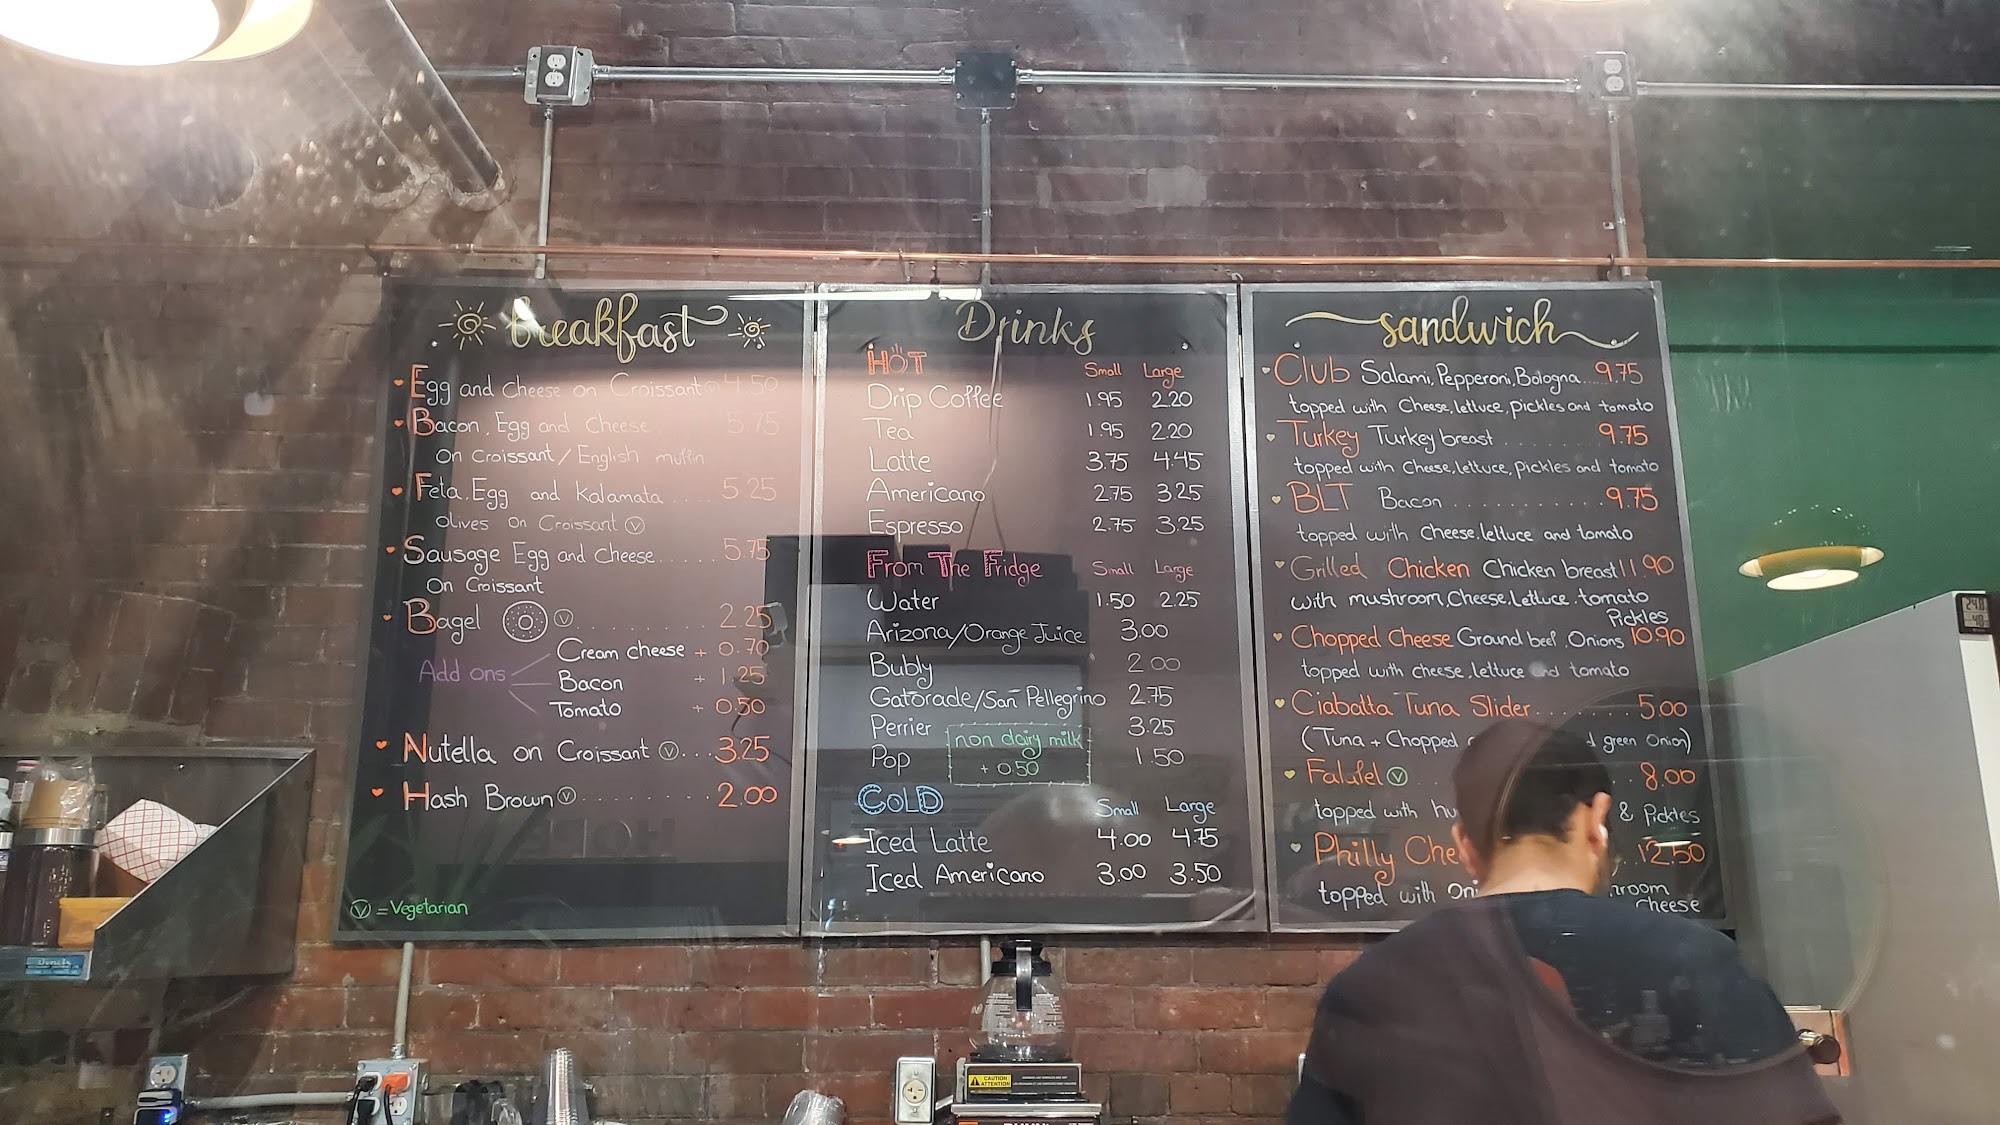 breakfast
Egg and cheese on Croissant V 4.50
Bacon, Egg and Cheese 5.75
On Croissant / English muffin
Feta, Egg and Kalamata .... 5.25
olives on Croissant V
Sausage Egg and Cheese ...... 5.75
On Croissant
Bagel V ........... 2.25
Cream cheese + 0.70
Add ons
Bacon + 1.25
Tomato + 0.50
Nutella on Croissant V ... 3.25
Hash Brown V ......... 2.00
V = Vegetarian
Drinks
HOT Small Large
Drip Coffee 1.95 2.20
Tea 1.95 2.20
Latte 3.75 4.45
Americano 2.75 3.25
Espresso 2.75 3.25
From The Fridge Small Large
Water 1.50 2.25
Arizona/Orange Juice 3.00
Bubly 2.00
Gatorade/San Pellegrino 2.75
Perrier 3.25
Pop 1.50
non dairy milk
+ 0.50
COLD Small Large
Iced Latte 4.00 4.75
Iced Americano 3.00 3.50
sandwich
Club Salami, Pepperoni, Bologna ... 9.75
topped with Cheese, lettuce, pickles and tomato
Turkey Turkey breast ........ 9.75
topped with Cheese, lettuce, Pickles and tomato
BLT Bacon .......... 9.75
topped with Cheese, lettuce and tomato
Grilled Chicken Chicken breast 11.90
with mushroom, Cheese, Lettuce, tomato
Pickles
Chopped Cheese Ground beef, Onions 10.90
topped with cheese, lettuce and tomato
Ciabatta Tuna Slider ....... 5.00
(Tuna + Chopped green Onion)
Falafel V 8.00
topped with & Pickles
Philly 12.50
topped with
Cheese
CAUTION
ATTENTION